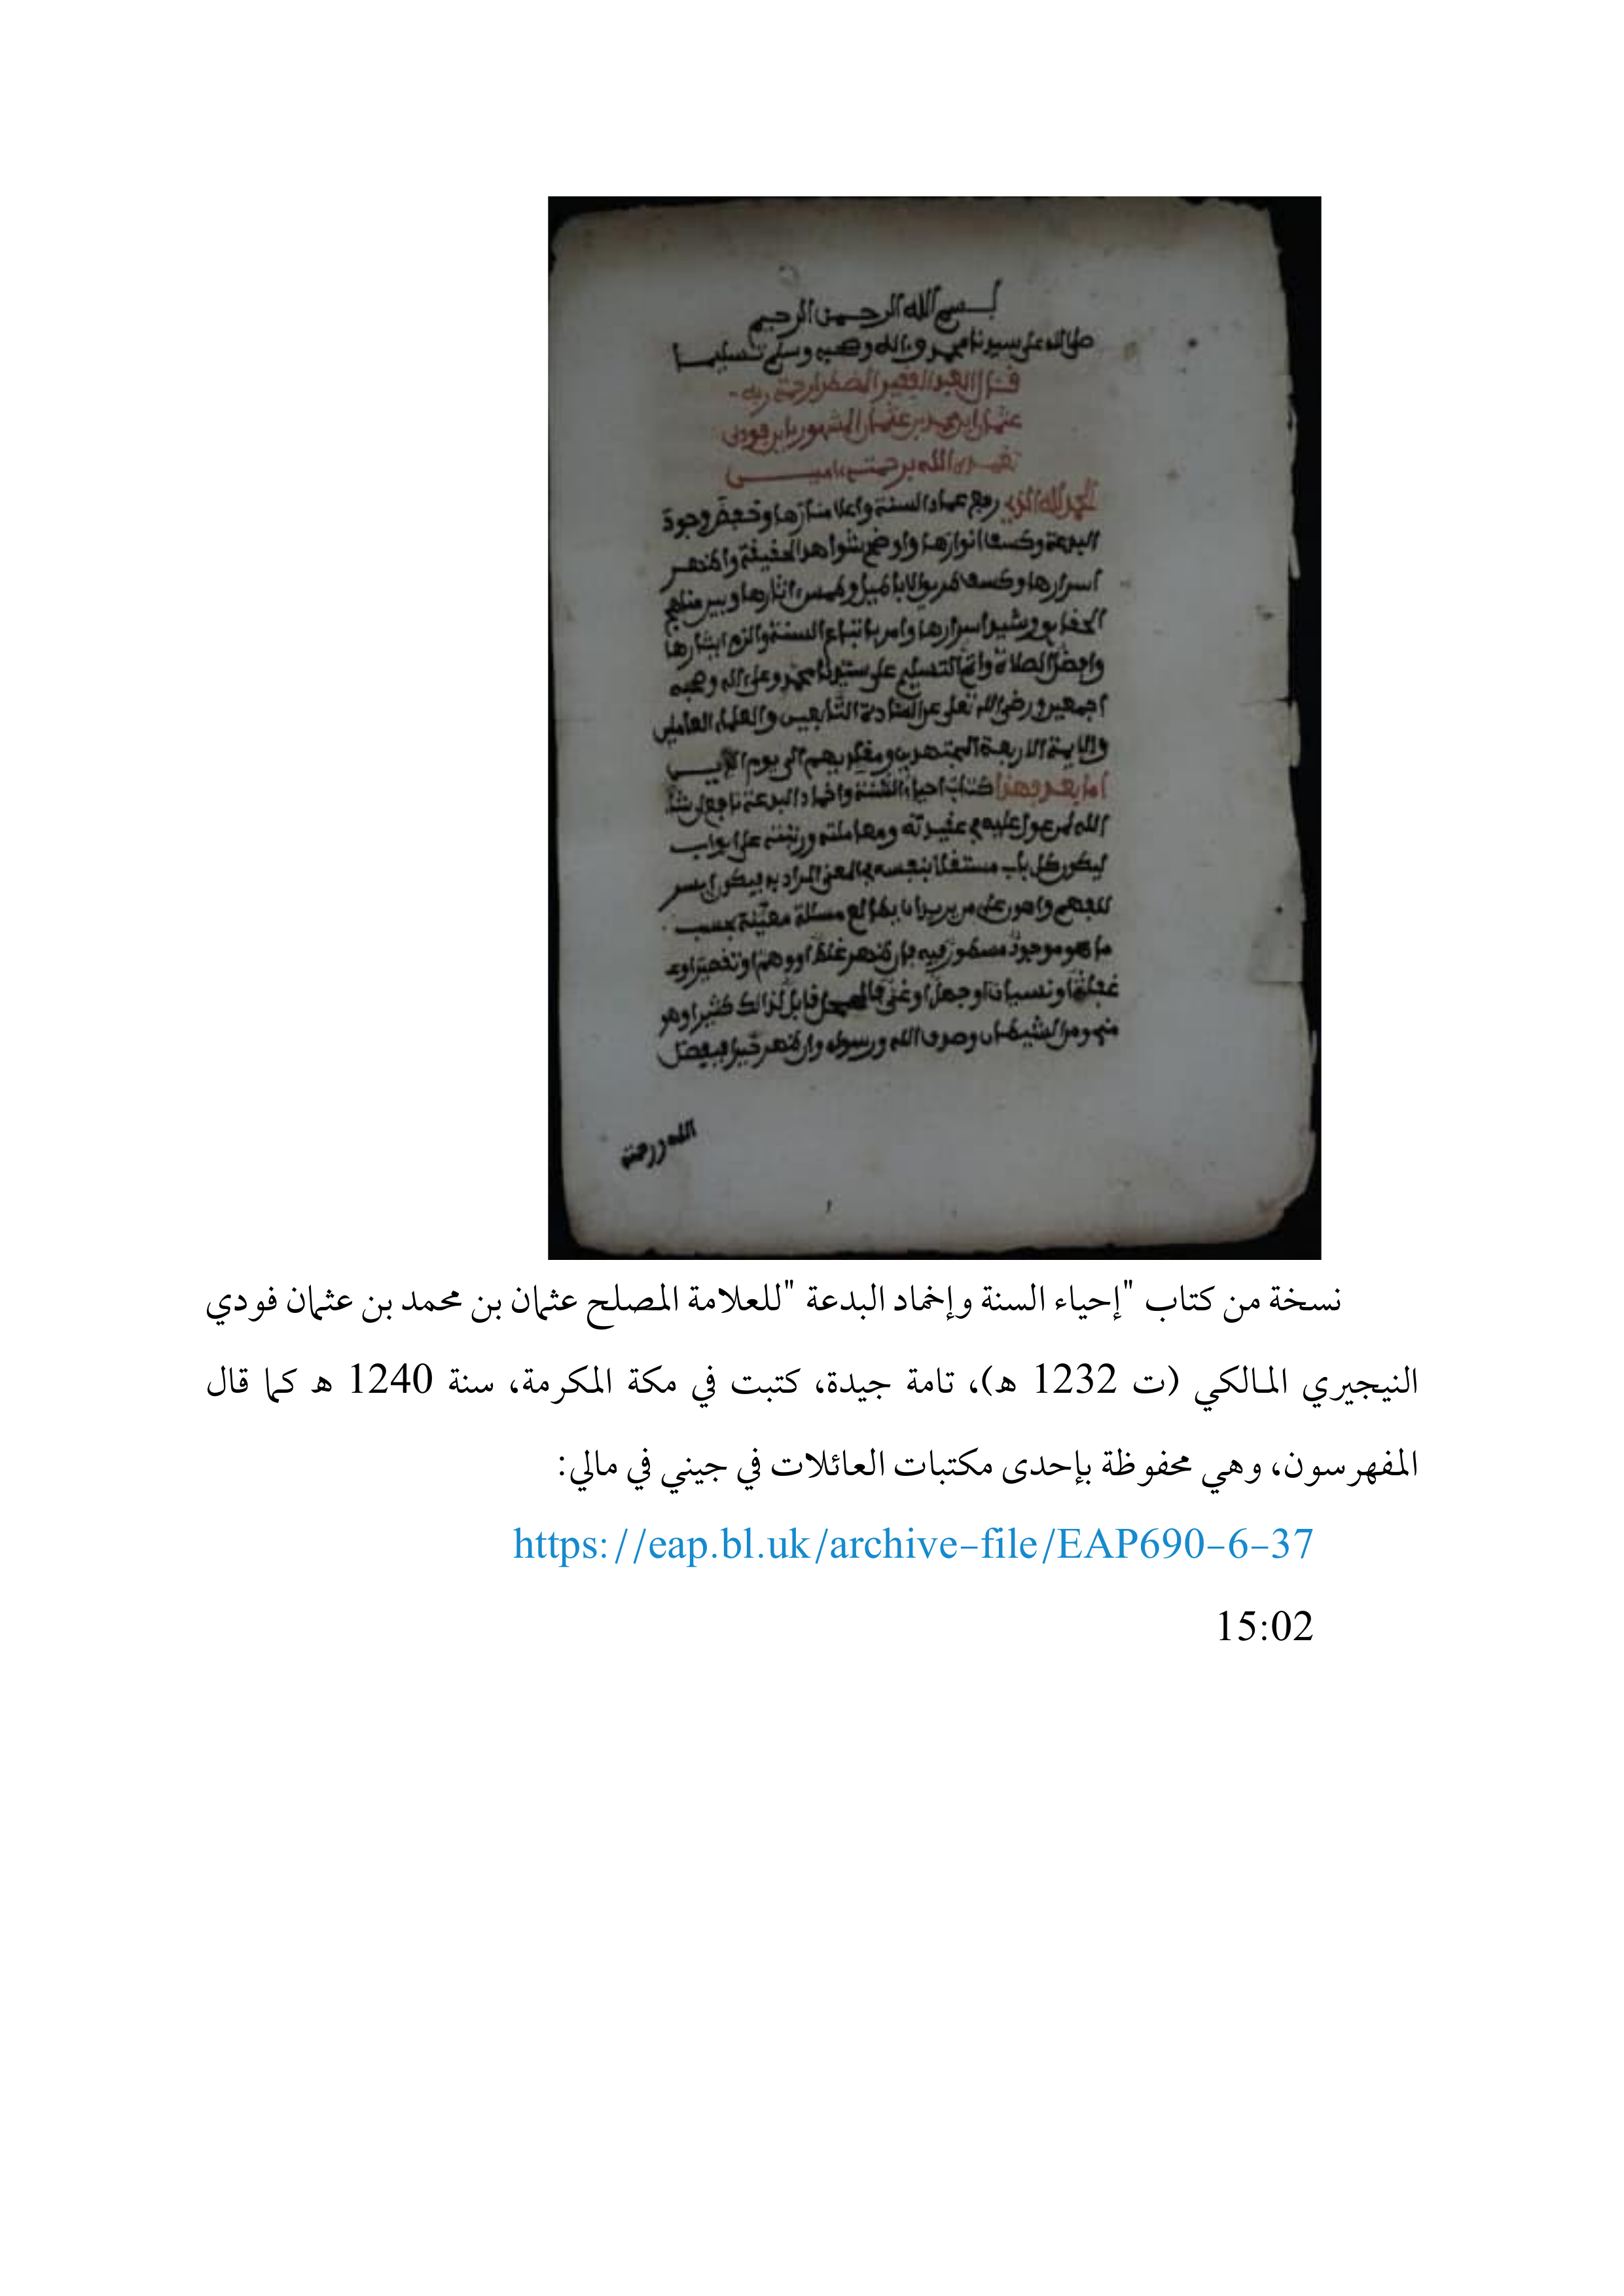 بسم الله الرحمن الرحيم
صلى الله على سيدنا محمد وءاله وصحبه وسلم تسليما
قال العبد الفقير المضطر لرحمة ربه
عثمان ابن محمد بن عثمان المشهور بابن فودي
تغمده الله برحمته ءاميـــن
الحمد لله الذي رفع عماد السنة واعلا منارها وخفض وجوه
البدعة وكسف انوارها واوضح شواهد الحقيقة واظهر
اسرارها وكسف طريق الاباطيل وطمس اثارها وبين مناهج
الحقايق وشيد اسرارها وامر باتباع السنة والزم ايثارها
وافضل الصلاة واتم التسليم على سيدنا محمد وعلى اله وصحبه
اجمعين ورضى الله تعلى عن السادة التابعين والعلماء العاملين
والايمة الاربعة المجتهدين ومقلديهم الى يوم الديـــن
اما بعد فهذا كتاب احياء السنة واخماد البدعة نافع ان شاء
الله لمن عول عليه في عقيدته ومعاملته ورتبته على ابواب
ليكون كل باب مستقلا بنفسه في المعنى المراد به فيكون ايسر
للفهم واهون على من يريد ان يطالع مسئلة معينة بحسب
ما هو موجود مسطور فيه فان ظهر غلط او وهم او تقصير او
غفلة او نسيان او جهل او المحل قابل لذالك كثيرا وهو
مني ومن الشيطان وصدق الله ورسوله وان ظهر خير فبفضل
الله ورحمته
نسخة من كتاب "إحياء السنة وإخماد البدعة "للعلامة المصلح عثمان بن محمد بن عثمان فودي
النيجيري المالكي (ت 1232 هـ)، تامة جيدة، كتبت في مكة المكرمة، سنة 1240 هـ كما قال
المفهرسون، وهي محفوظة بإحدى مكتبات العائلات في جيني في مالي:
https://eap.bl.uk/archive-file/EAP690-6-37
15:02